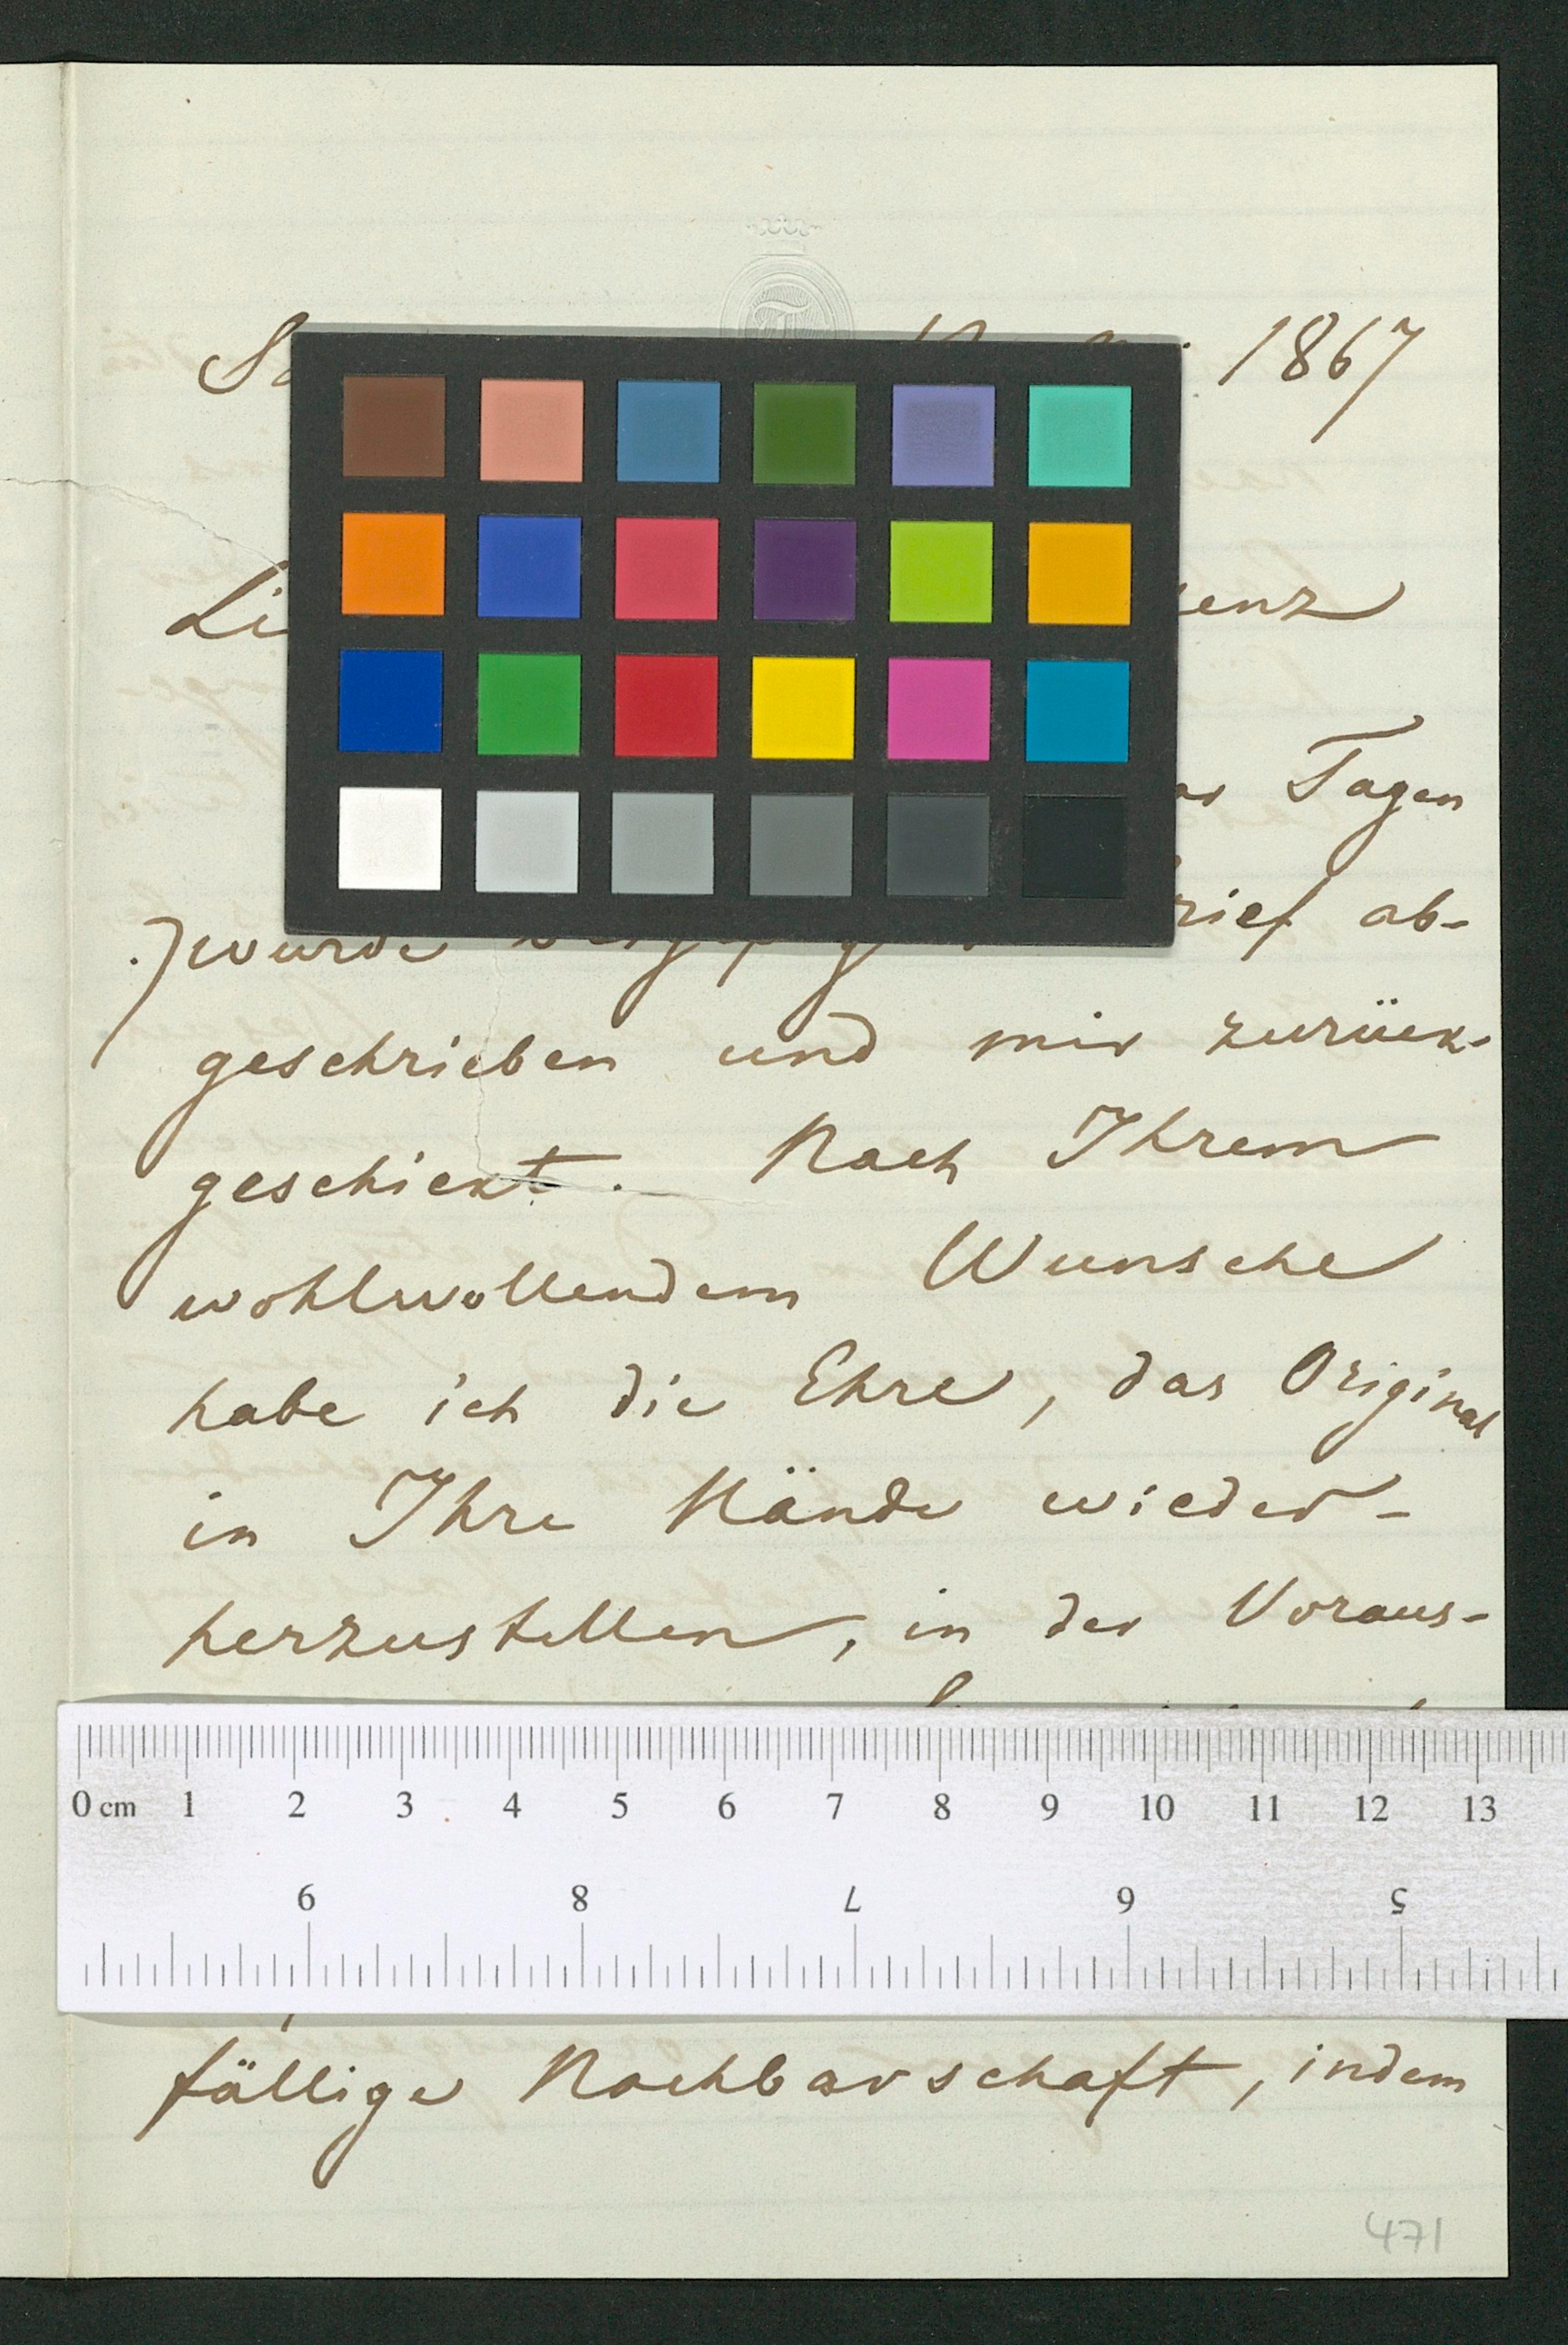 1867
Tagen
wurde ab-
geschrieben und mir zurück-
geschickt. Nach Ihrem
wohlwollendem Wunsche
habe ich die Ehre, das Original
in Ihre Hände wieder-
herzustellen, in der Voraus-
0 cm 1 2 3 4 5 6 7 8 9 10 11 12 13
9 8 7 6 5
fällige Nachbarschaft, indem
471